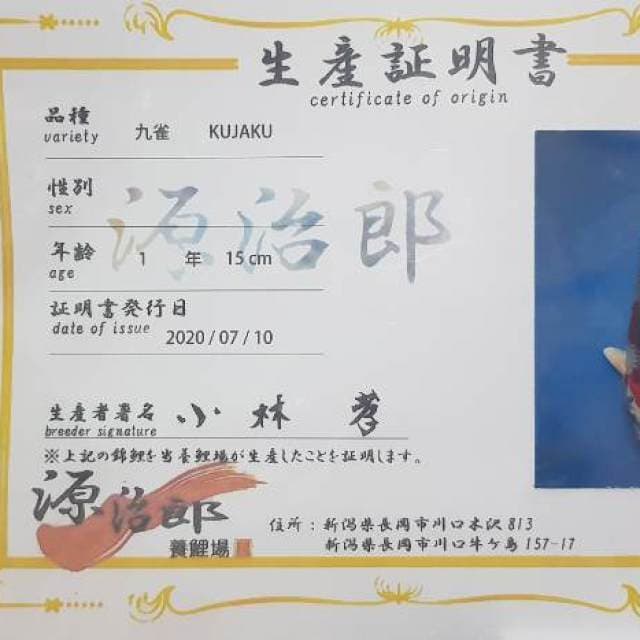 生産証明書
certificate of origin
品種 九雀 KUJAKU
variety
性別
sex
源治郎
年齢 1 年 15 cm
age
証明書発行日
date of issue 2020 / 07 / 10
生産者署名 小林 孝
breeder signature
※上記の錦鯉を当養鯉場が生産したことを証明します。
源治郎
養鯉場
住所：新潟県長岡市川口木沢 813
新潟県長岡市川口牛ケ島 157-17